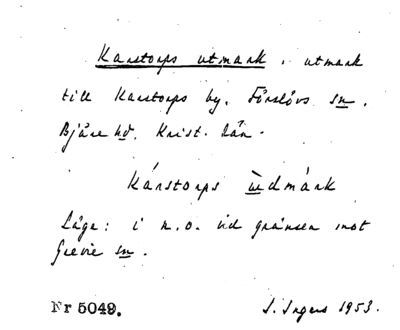 Karstorps utmark. utmark
till Karstorps by. Förslövs sn.
Bjäre hd. Krist. län.
Kárstorps ùdmàrk
Läge: i n.o. vid gränsen mot
Grevie sn.
Nr 5049. I. Ingers 1953.